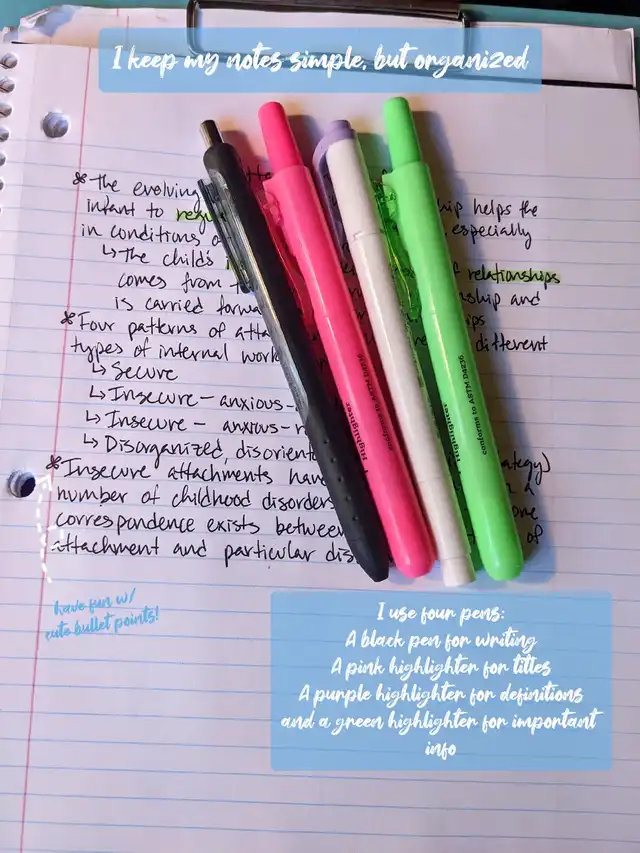 I keep my notes simple, but organized
*The evolving
infant to regu hip helps the
in conditions o , especially
↳ The child's of relationships
comes from t nship and
is carried forwa ships
*Four patterns of atta different
types of internal work
↳ Secure
↳ Insecure - anxious-
↳ Insecure - anxious-
↳ Disorganized, disorient
*Insecure attachments have ategy)
number of childhood disorders a
correspondence exists between one
attachment and particular dis of
Highlighter
conforms to ASTM D4236
Highlighter
conforms to ASTM D4236
have fun w/
cute bullet points!
I use four pens:
A black pen for writing
A pink highlighter for titles
A purple highlighter for definitions
and a green highlighter for important
info